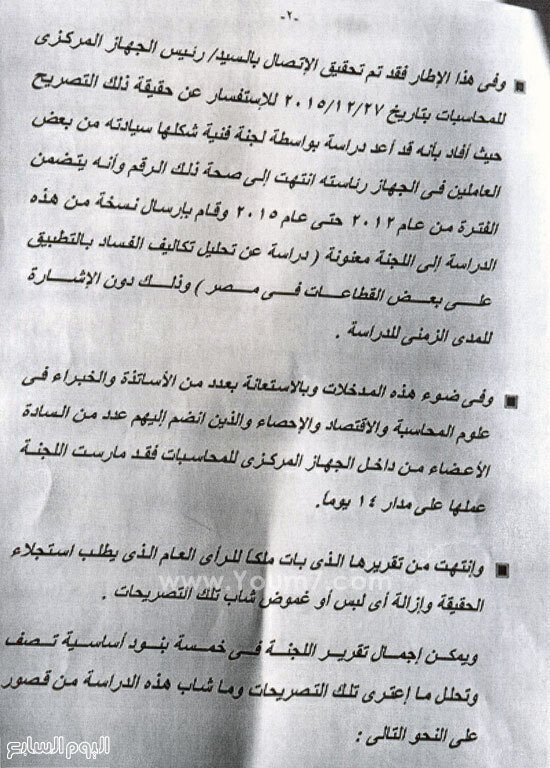 -٢-
وفى هذا الإطار فقد تم تحقيق الإتصال بالسيد/ رئيس الجهاز المركزى
للمحاسبات بتاريخ ٢٠١٥/١٢/٢٧ للإستفسار عن حقيقة ذلك التصريح
حيث أفاد بأنه قد أعد دراسة بواسطة لجنة فنية شكلها سيادته من بعض
العاملين فى الجهاز رئاسته انتهت إلى صحة ذلك الرقم وأنه يتضمن
الفترة من عام ٢٠١٢ حتى عام ٢٠١٥ وقام بإرسال نسخة من هذه
الدراسة إلى اللجنة معنونة ( دراسة عن تحليل تكاليف الفساد بالتطبيق
على بعض القطاعات فى مصر ) وذلك دون الإشارة
للمدى الزمنى للدراسة .
وفى ضوء هذه المدخلات وبالاستعانة بعدد من الأساتذة والخبراء فى
علوم المحاسبة والاقتصاد والإحصاء والذين انضم إليهم عدد من السادة
الأعضاء من داخل الجهاز المركزى للمحاسبات فقد مارست اللجنة
عملها على مدار ١٤ يوماً.
وإنتهت من تقريرها الذى بات ملكاً للرأى العام الذى يطلب استجلاء
الحقيقة وإزالة أى لبس أو غموض شاب تلك التصريحات .
www.Youm7.com
ويمكن إجمال تقرير اللجنة فى خمسة بنود أساسية تصف
وتحلل ما إعترى تلك التصريحات وما شاب هذه الدراسة من قصور
على النحو التالى :
اليوم السابع